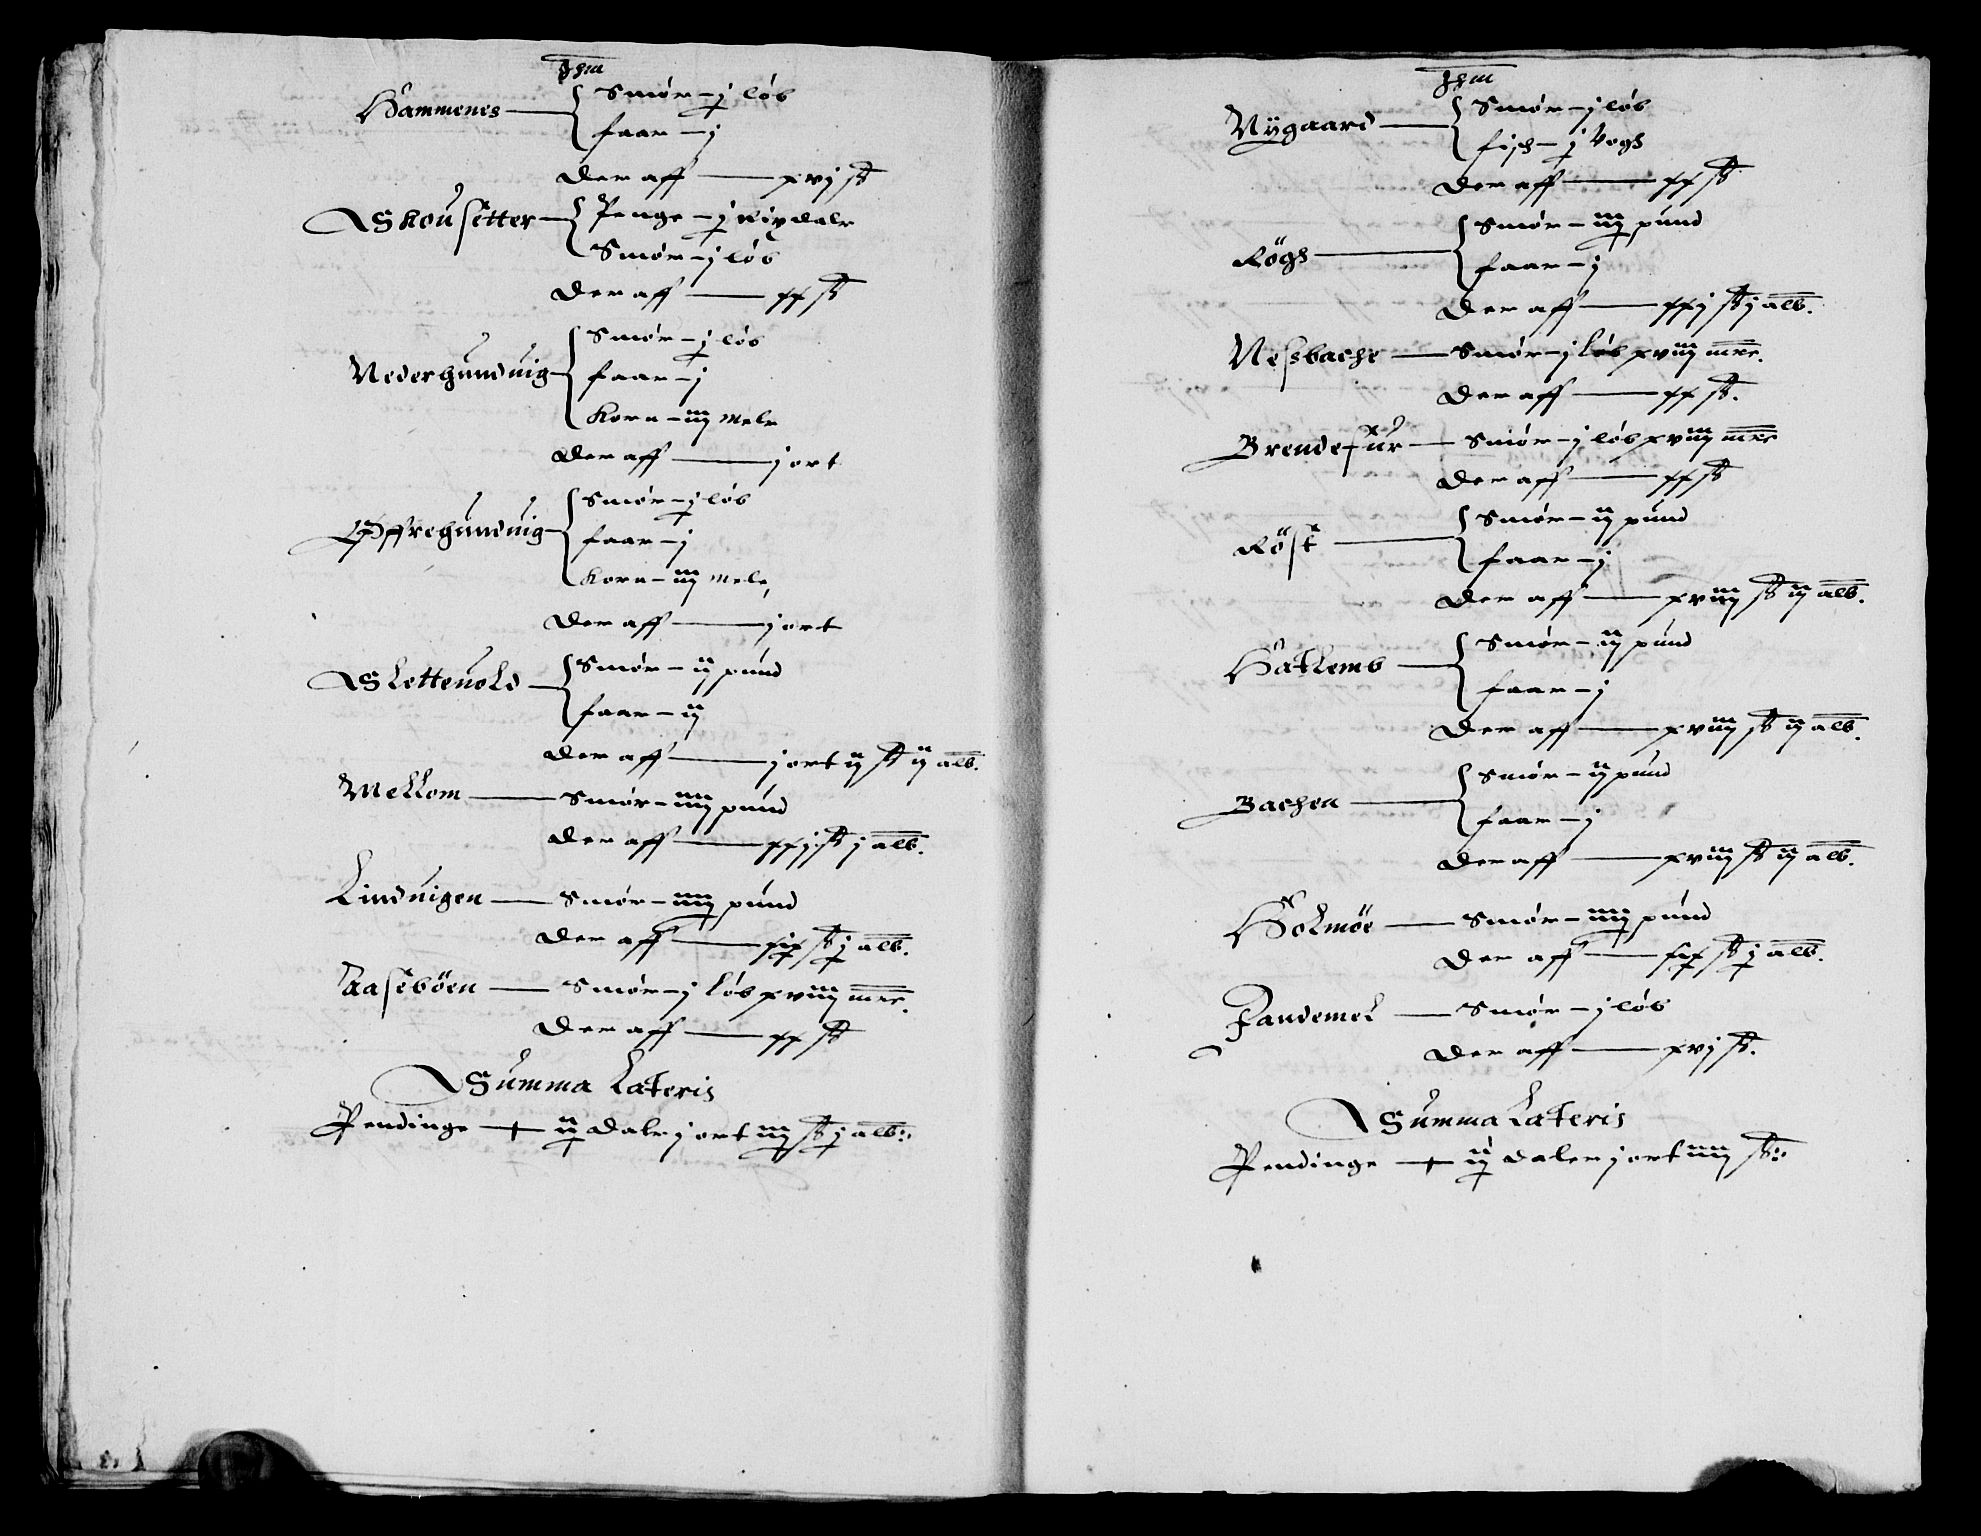 Jhm
Hammenes — Smör – j löb
faar – j
Der aff — xvj ſß
Skouſetter – Penge – j Rixdaler
Smör – j löb
Der aff — xx ſß
Nedergunduig – Smör – j löb
faar – j
Korn – iij Meler
Der aff — j ort
Øffregunduig – Smör – j löb
faar – j
Korn – iij Meler
Der aff — j ort
Slettevold – Smör – ij pund
faar – ij
Der aff — j ort ij ſß ij alb.
Meklom — Smör – iiij pund
Der aff — xxj ſß j alb.
Linduigen — Smör – iiij pund
Der aff — xix ſß j alb.
Aaſeböen — Smör – j löb xviij mrc.
Der aff — xx ſß
Summa Lateris
Pendinge — ij Daler j ort iij ſß j alb:
Jhm
Nÿgaard — Smör – j löb
fiſch – j Vogh
Der aff — xx ſß
Rögh — Smör – iij pund
faar – j
Der aff — xxj ſß j alb.
Neſsbache — Smör – j löb xviij mrc.
Der aff — xx ſß.
Brendefur — Smör – j löb xviij mrc
Der aff — xx ſß
Röſt — Smör – ij pund
faar – j
Der aff — xviij ſß ij alb.
Hatlemb — Smör – ij pund
faar – j
Der aff — xviij ſß ij alb.
Bachen — Smör – ij pund
faar – j
Der aff — xviij ſß ij alb.
Holmöe — Smör – iiij pund
Der aff — xix ſß j alb.
Fandemel — Smör – j löb
Der aff — xvj ſß.
Summa Lateris
Pendinge — ij daler j ort iiij ſß: